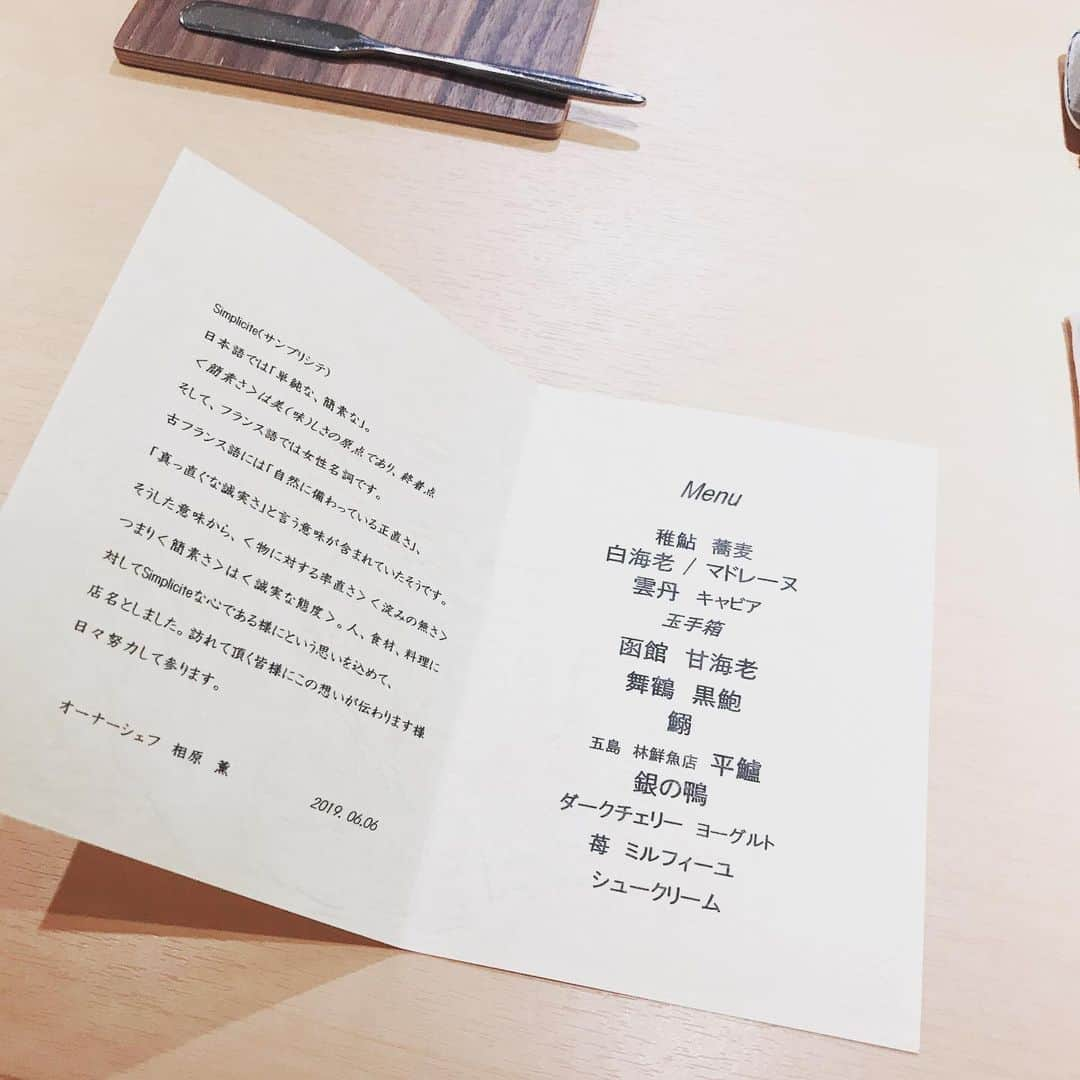 Simplicite(サンプリシテ)
日本語では「単純な、簡素な」。
<簡素さ>は美(味)しさの原点であり、終着点
そして、フランス語では女性名詞です。
古フランス語には「自然に備わっている正直さ」、
「真っ直ぐな誠実さ」と言う意味が含まれていたそうです。
そうした意味から、<物に対する率直さ><淀みの無さ>
つまり<簡素さ>は<誠実な態度>。人、食材、料理に
対してSimpliciteな心である様にという思いを込めて、
店名としました。訪れて頂く皆様にこの想いが伝わります様
日々努力して参ります。
オーナーシェフ 相原 薫
2019.06.06
Menu
稚鮎 蕎麦
白海老 / マドレーヌ
雲丹 キャビア
玉手箱
函館 甘海老
舞鶴 黒鮑
鰯
五島 林鮮魚店 平鱸
銀の鴨
ダークチェリー ヨーグルト
苺 ミルフィーユ
シュークリーム